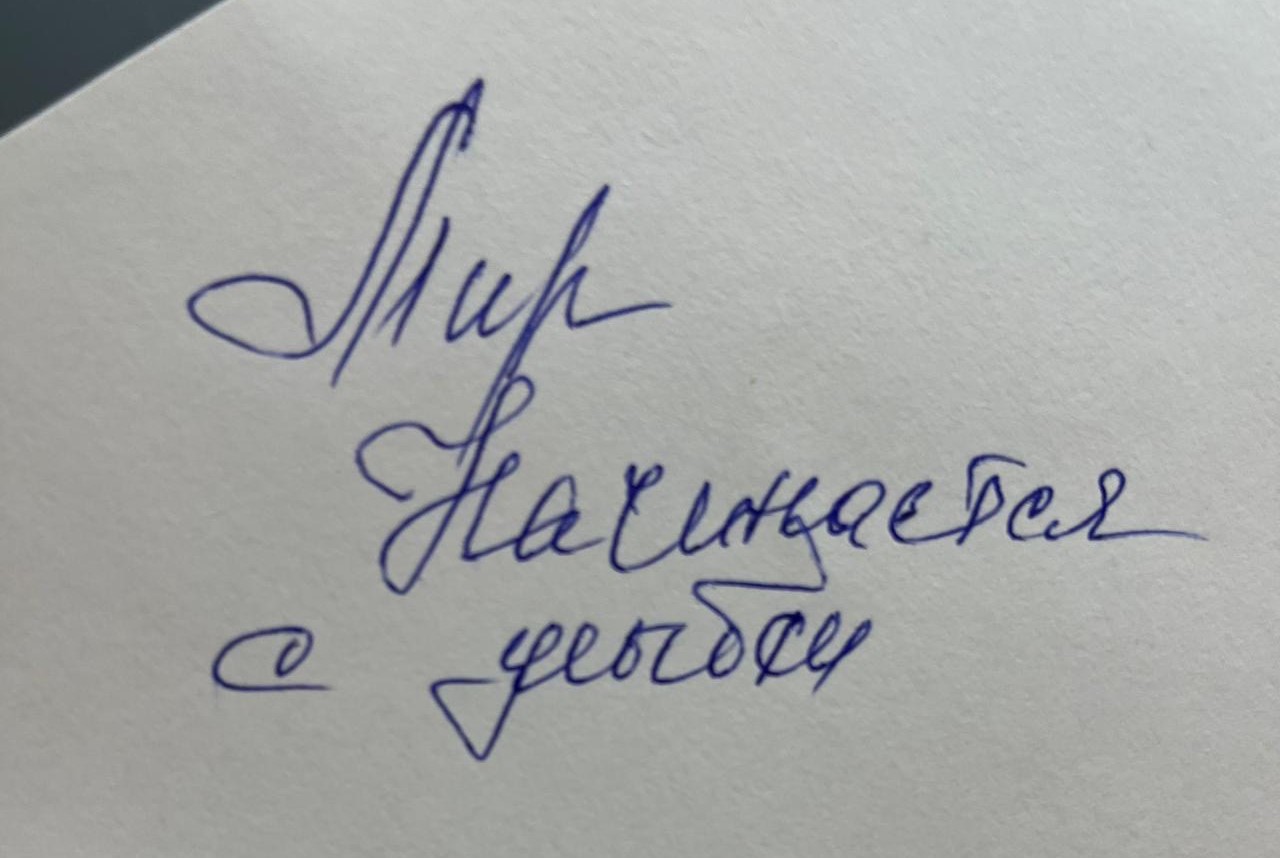 Мир
Начинается
с улыбки